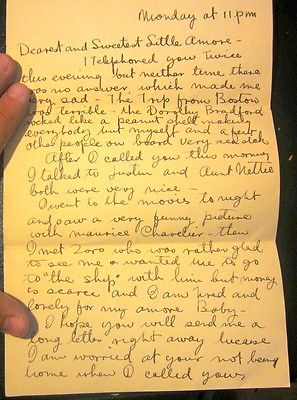 Monday at 11 P.M
Dearest and Sweetest Little Amore -
I Telephoned you Twice
this evening but neither time there
was no answer, which made me
very sad - The Trip from Boston
was terrible - the Dorothy Bradford
rocked like a peanut shell making
everybody but myself and a few
other people on board very sea sick
After I called you this morning
I talked to Justin and Aunt Nettie
both were very nice -
I went to the movies to night
and saw a very funny picture
with Maurice Chavelier - then
I met Zoro who was rather glad
to see me & wanted me to go
to "the ship" with him but money
is scarce and I am tired and
lonely for my amore Baby -
I hope you will send me a
long letter right away because
I am worried at your not being
home when I called you,